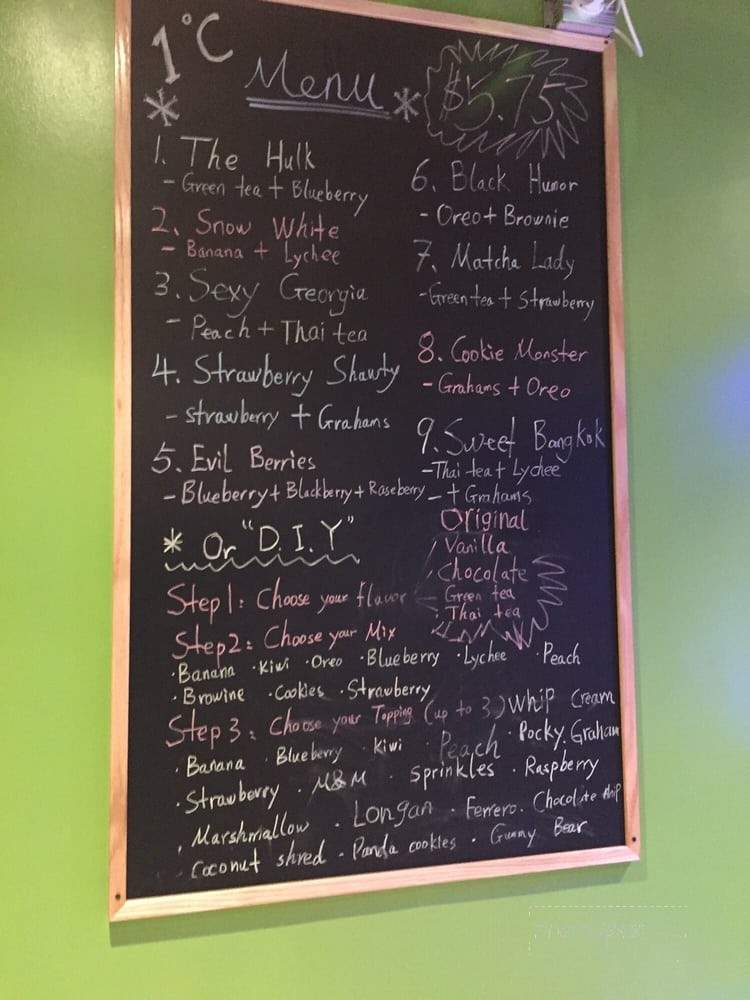 1°C
* Menu *
$5.75
1. The Hulk
- Green tea + Blueberry
2. Snow White
- Banana + Lychee
3. Sexy Georgia
- Peach + Thai tea
4. Strawberry Shawty
- strawberry + Grahams
5. Evil Berries
- Blueberry + Blackberry + Raseberry
6. Black Humor
- Oreo + Brownie
7. Matcha Lady
- Green tea + Strawberry
8. Cookie Monster
- Grahams + Oreo
9. Sweet Bangkok
- Thai tea + Lychee
- + Grahams
* Or "D.I.Y"
Step 1: Choose your flavor
Original
Vanilla
Chocolate
Green tea
Thai tea
Step 2: Choose your Mix
· Banana · Kiwi · Oreo · Blueberry · Lychee · Peach
· Browine · Cookies · Strawberry
Step 3: Choose your Topping (up to 3) Whip Cream
· Banana · Blueberry · Kiwi · Peach · Pocky. Graham
· Strawberry · M&M · sprinkles · Raspberry
· Marshmallow · Longan · Ferrero. Chocolate chip
· Coconut shred · Panda cookies · Gummy Bear